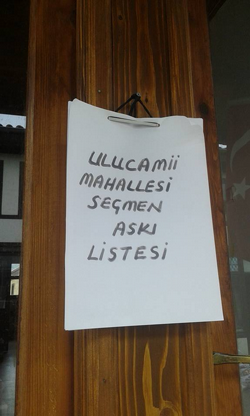 ULUCAMİİ
MAHALLESİ
SEÇMEN
ASKI
LİSTESİ